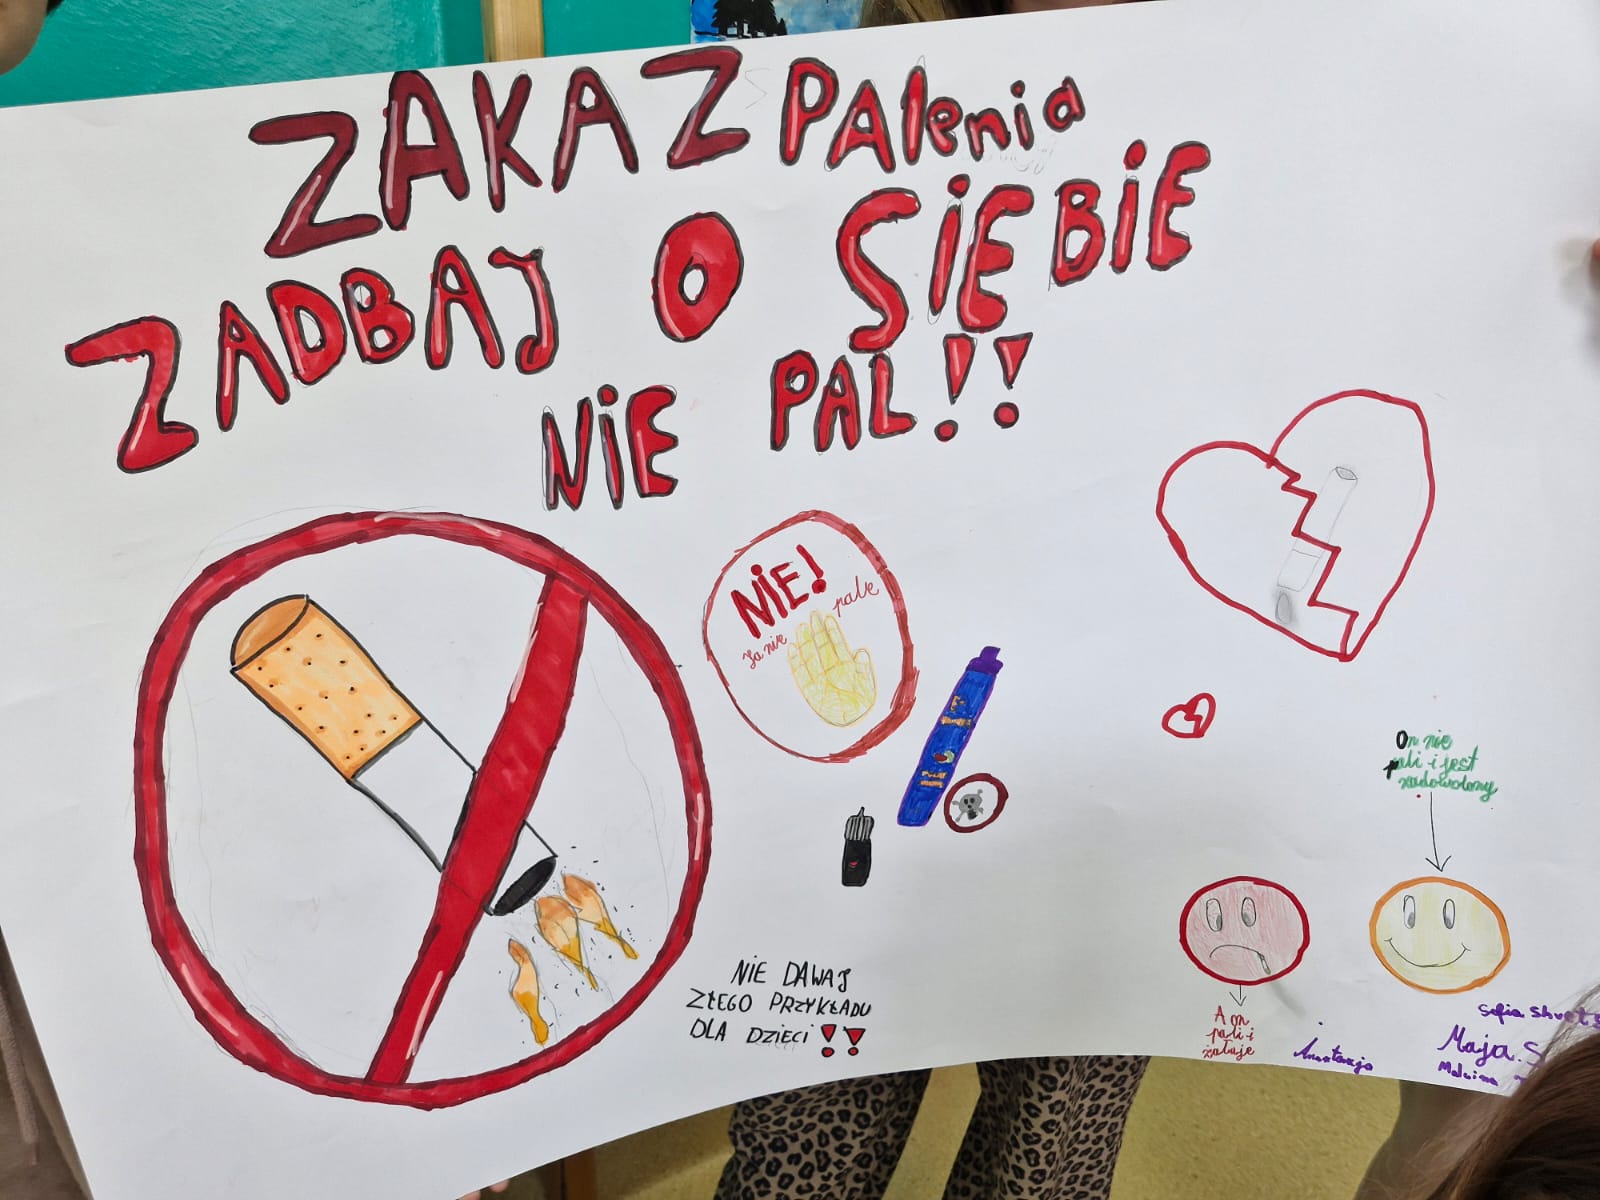 ZAKAZ PAlenia
ZADBAJ O SIEBIE
NIE PAL!!
NIE!
Ja nie palę
On nie
pali i jest
zadowolony
A on
pali i
żałuje
NIE DAWAJ
ZŁEGO PRZYKŁADU
DLA DZIECI!!
Sofia
Maja.S
Malwina